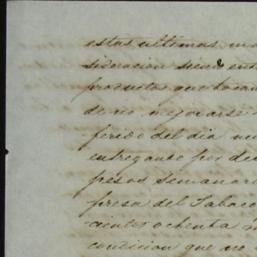 estas ultimas, no
sideracion siendo en
productos que tocan
de no mejorarse
ferido del dia nu
entregando por de
pesos semanari
presa del Tabaco
cientos ochenta m
condicion que no